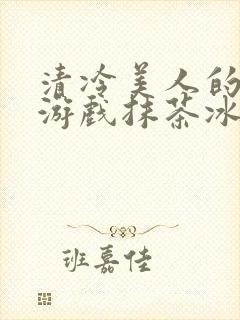 清冷美人的
游戏抹茶冰
班嘉佳